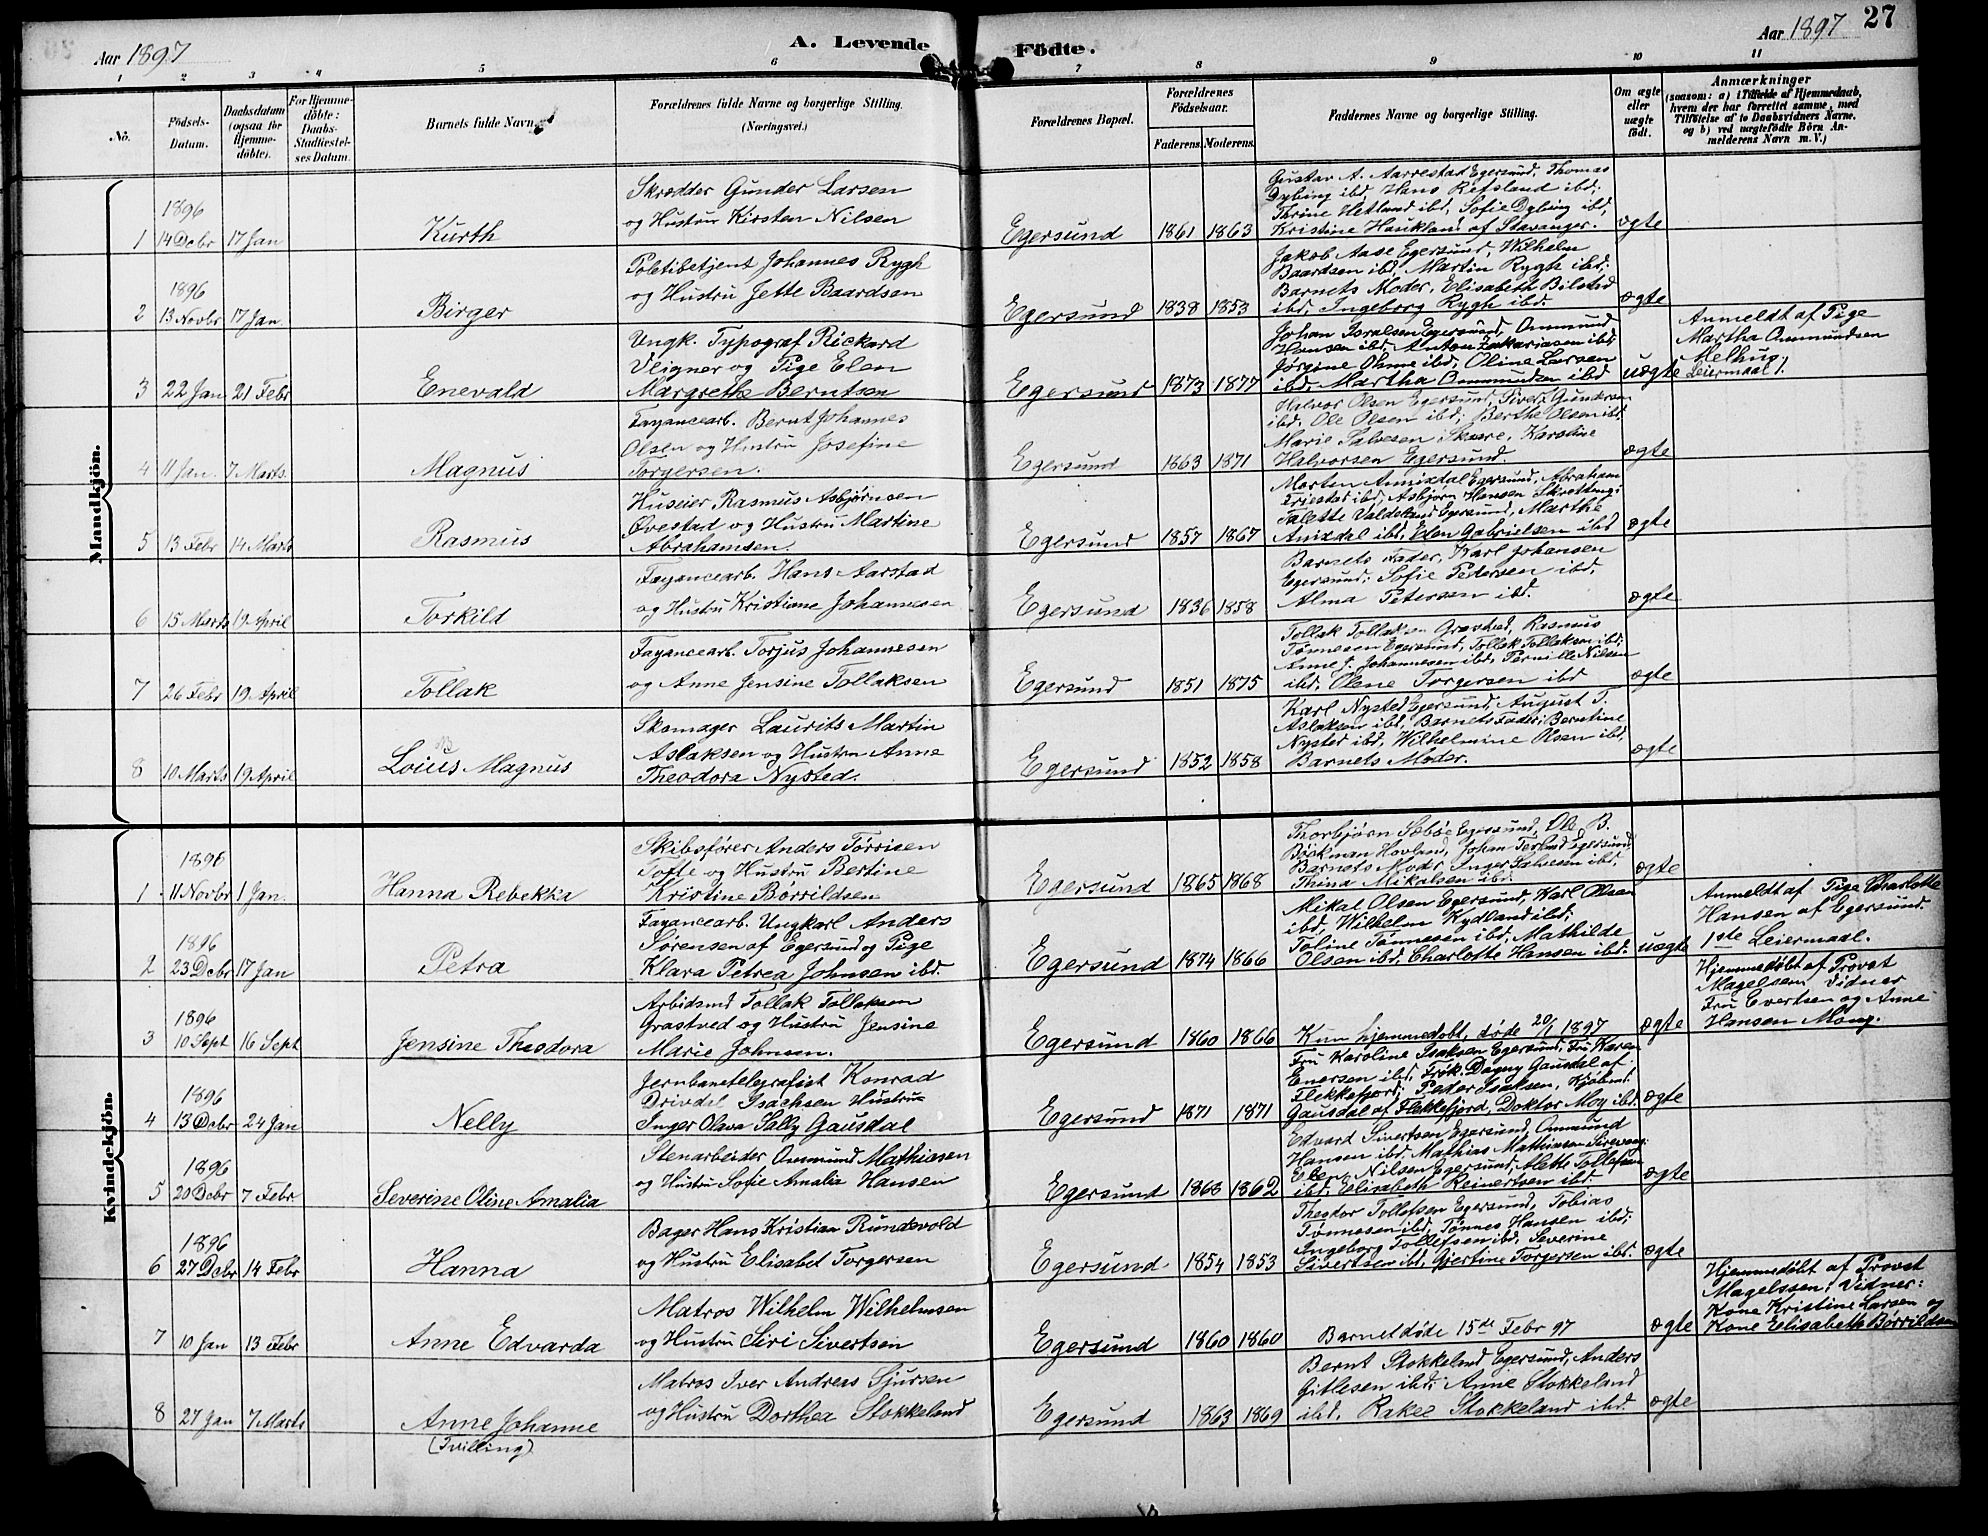 Aar 1897
A. Levende Födte.
Aar 1897 27
1 2 3 4 5 6 7 8 9 10 11
No.
Födsels-
Datum.
Daabsdatum
(ogsaa for
Hjemme-
döbte).
For Hjemme-
döbte:
Daabs-
Stadfæstel-
ses Datum.
Barnets fulde Navn.
Forældrenes fulde Navne og borgerlige Stilling.
(Næringsvei.)
Forældrenes Bopæl.
Forældrenes
Födselsaar.
Faderens. Moderens.
Faddernes Navne og borgerlige Stilling.
Om ægte
eller
uægte
födt.
Anmærkninger
(saasom: a) i Tilfælde af Hjemmedaab,
hvem der har forrettet samme, med
Tilföielse af to Daabsvidners Navne,
og b) ved uægtefödte Börn An-
melderens Navn m. V.)
Mandkjön.
1896
1 14 Debr 17 Jan
Kurth
Skrædder Gunder Larsen
og Hustru Kirsten Nilsen
Egersund 1861 1863
Gustav A. Aarrestad Egersund, Thomas
Dybing ibd, Hans Refsland ibd;
Thrine Hetland ibd, Sofie Dybing ibd,
Kristine Haukland af Stavanger.
ægte
1896
2 13 Novbr 17 Jan.
Birger
Politibetjent Johannes Rygh
og Hustru Jette Baardsen
Egersund 1838 1853
Jakob Aase Egersund, Wilhelm
Baardsen ibd, Martin Rygh ibd;
Barnets Moder, Elisabeth Bilsted
ibd, Ingeborg Rygh ibd.
ægte
3 22 Jan 21 Febr
Enevald
Ungk. Typograf Rickard
Veigner og Pige Elen
Margrethe Berntsen
Egersund 1873 1877
Johan Isralsen Egersund, Ommund
Hansen ibd, Anton Zakariasen ibd;
Jørgine Ohme ibd, Oline Larsen
ibd, Martha Ommundsen ibd
uægte
Anmeldt af Pige
Martha Ommundsen
Melhus,
Leiermaal 1.
4 11 Jan. 7 Marts.
Magnus
Fayancearb. Bernt Johannes
Olsen og Hustru Josefine
Torgersen.
Egersund 1863 1871
Halvor Olsen Egersund, Sivert Gundersen
ibd, Ole Olsen ibd; Berthe Olsen ibd,
Marie Salvesen Skaare, Karoline
Halvorsen Egersund.
ægte
5 13 Febr 14 Marts
Rasmus
Huseier Rasmus Asbjørnsen
Øvestad og Hustru Martine
Abrahamsen.
Egersund 1857 1867
Morten Anixdal Egersund, Abraham
ibd, Asbjørn Hansen
Talette Egersund, Marthe
Anixdal ibd, Elen Gabrielsen ibd
ægte
6 15 Marts 19 April
Torkild
Fayancearb. Hans Aarstad
og Hustru Kristiane Johannesen
Egersund 1836 1858
Barnets Fader, Karl Johansen
Egersund; Sofie Pedersen ibd,
Alma Petersen ibd.
ægte
7 26 Febr 19 April
Tollak
Fayancearb. Torjus Johannesen
og Anne Jensine Tollaksen
Egersund 1851 1875
Tollak Tollaksen Grastved, Rasmus
Tønnesen Egersund, Tollak Tollaksen ibd;
Anne J. Johannesen ibd, Pernille Nilsen
ibd, Olene Torgersen ibd
ægte
8 10 Marts 19 April
Loius Magnus
Skomager Laurits Martin
Aslaksen og Hustru Anne
Theodora Nysted.
Egersund 1852 1858
Karl Nysted Egersund, August T.
Aslaksen ibd, Barnets Fader; Berntine
Nysted ibd, Wilhelmine Olsen ibd,
Barnets Moder.
ægte
Kvindekjön.
1896
1 11 Novbr 1 Jan.
Hanna Rebekka
Skibsfører Anders Tørrisen
Tofte og Hustru Bertine
Kristine Børrildsen
Egersund 1865 1868
Thorbjørn Sæbøe Egersund, Ole B.
Böckman Hovland, Johan Terland Egersund;
Barnets Moder, Inger Salvesen ibd,
Thina Mikalsen ibd.
ægte
1896
2 23 Debr 17 Jan
Petra
Fayancearb. Ungkarl Anders
Sørensen af Egersund og Pige
Klara Petrea Johnsen ibd.
Egersund 1874 1866
Mikal Olsen Egersund, Karl Olsen
ibd, Wilhelm Kydland ibd;
Toline Tønnesen ibd, Mathilde
Olsen ibd, Charlotte Hansen ibd.
uægte
Anmeldt af Pige Charlotte
Hansen af Egersund.
1ste Leiermaal.
1896
3 10 Sept 16 Sept
Jensine Theodora
Arbidsmd Tollak Tollaksen
Grastved og Hustru Jensine
Marie Johnsen.
Egersund 1860 1866
Kun hjemmedøbt, døde 20/1 1897
ægte
Hjemmedøbt af Provst
Magelssen, Vidner
Fru Evertsen og Anne
Hansen Mong.
1896
4 13 Debr 24 Jan
Nelly
Jernbanetelegrafist Konrad
Drivdal Isachsen Hustru
Inger Olava Sally Gausdal
Egersund 1871 1871
Fru Karoline Isaksen Egersund, Fru Karen
Enersen ibd, Frøk. Dagny Gausdal af
Flekkefjord; Peder Isaksen, Kjøbmd.
Gausdal af Flekkefjord, Doktor Moy ibd.
ægte
1896
5 20 Debr 7 Febr
Severine Oline Amalia
Stenarbeider Ommund Mathiasen
og Hustru Sofie Amalia Hansen
Egersund 1868 1862
Edvard Sivertsen Egersund, Ommund
Hansen ibd, Mathias Mathiasen Sirevaag;
Elen Nilsen Egersund, Alette Tollefsen
ibd, Elisabeth Reinertsen ibd
ægte
1896
6 27 Debr 14 Febr
Hanna
Bager Hans Kristian Rundsvold
og Hustru Elisabet Torgersen
Egersund 1854 1853
Theodor Tollefsen Egersund, Tobias
Tønnesen ibd, Tønnes Hansen ibd;
Ingeborg Tollefsen ibd, Severine
Sivertsen ibd, Gjertine Torgersen ibd.
ægte
7 10 Jan 13 Febr
Anne Edvarda
Matros Wilhelm Wilhelmsen
og Hustru Siri Sivertsen
Egersund 1860 1860
Barnet døde 15de Febr 97
ægte
Hjemmedøbt af Provst
Magelssen; Vidner:
Kone Kristine Larsen og
Kone Elisabeth Børrildsen
8 27 Jan 7 Marts
Anne Johanne
(Tvilling)
Matros Iver Andreas Sjursen
og Hustru Dorthea Stokkeland
Egersund 1863 1869
Bernt Stokkeland Egersund, Anders
Gitlesen ibd; Anne Stokkeland
ibd, Rakel Stokkeland ibd.
ægte